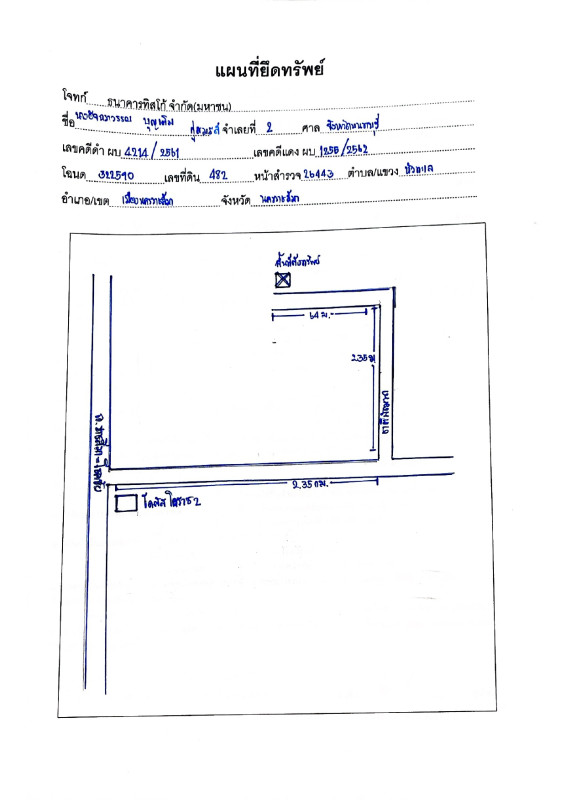 แผนที่ยึดทรัพย์
โจทก์ ธนาคารทิสโก้ จำกัด(มหาชน)
ชื่อ บุญเติม คู่สมรส จำเลยที่ 2 ศาล จังหวัดนนทบุรี
เลขคดีดำ ผบ 4214/2561 เลขคดีแดง ผบ 1255/2562
โฉนด 322590 เลขที่ดิน 482 หน้าสำรวจ 26443 ตำบล/แขวง หัวทะเล
อำเภอ/เขต เมืองนครราชสีมา จังหวัด นครราชสีมา
ที่ตั้งทรัพย์
64 ม.
235 ม
2.35 กม.
ถ.
โลตัส โคราช 2